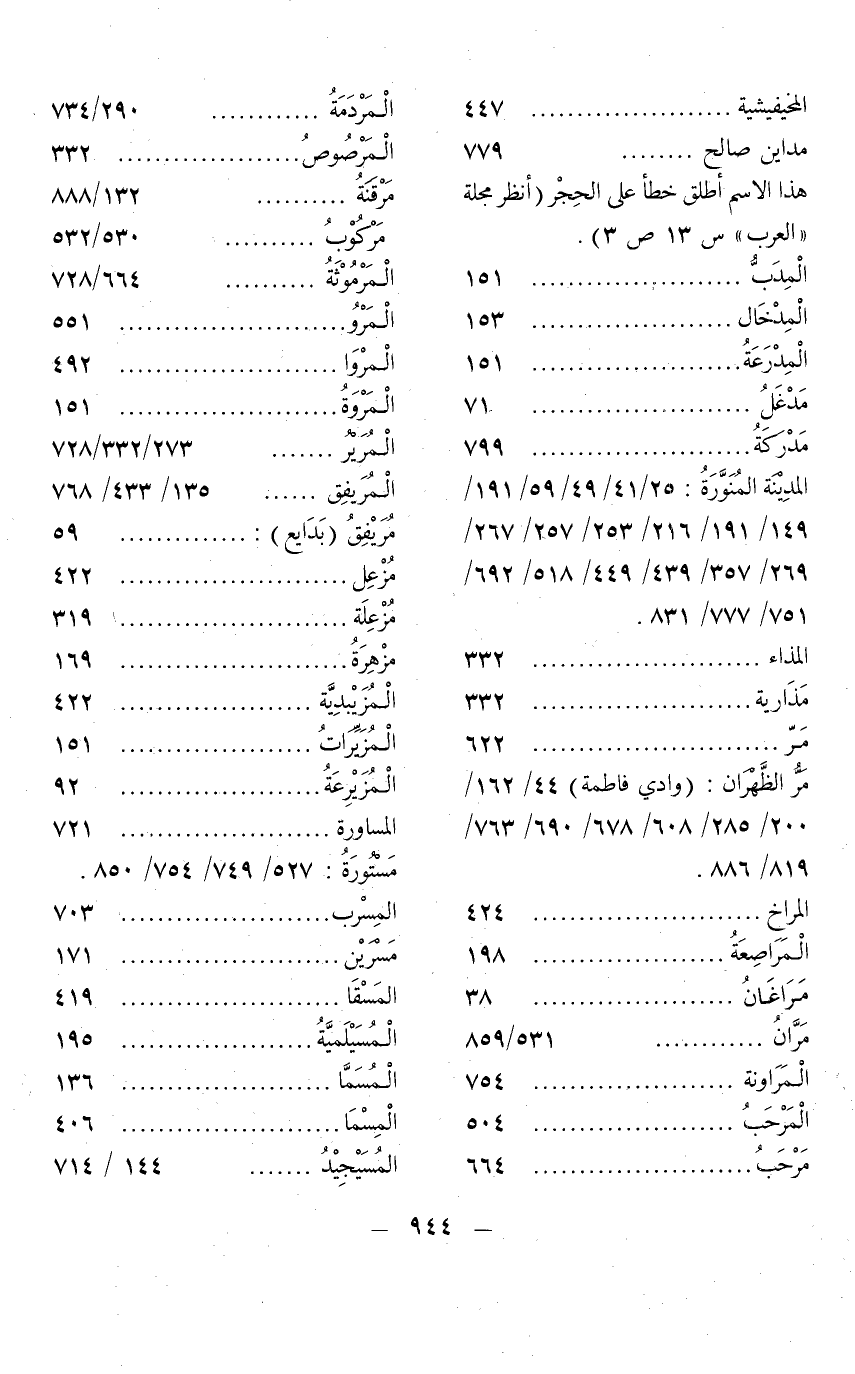 المخيفيشية ...................... ٤٤٧
مداين صالح ........ ٧٧٩
هذا الاسم أطلق خطأ على الحِجْر (أنظر مجلة
«العرب» س ١٣ ص ٣) .
الْمِدَبُّ ...................... ١٥١
الْمِدْخَال ..................... ١٥٣
الْمِدْرَعَةُ ...................... ١٥١
مَدْغَلُ ...................... ٧١
مَدْرَكَةُ ...................... ٧٩٩
المدِيْنَة المُنَوَّرَةُ : ٢٥/٤١/ ٤٩/ ٥٩/ ١٩١/
١٤٩/ ١٩١/ ٢١٦/ ٢٥٣/ ٢٥٧/ ٢٦٧/
٢٦٩/ ٣٥٧/ ٤٣٩/ ٤٤٩/ ٥١٨/ ٦٩٢/
٧٥١/ ٧٧٧/ ٨٣١ .
المذاء ....................... ٣٣٢
مَذَارية ...................... ٣٣٢
مَرّ ......................... ٦٢٢
مَرُّ الظَّهْرَان : (وادي فاطمة) ٤٤/ ١٦٢/
٢٠٠/ ٢٨٥/ ٦٠٨/ ٦٧٨/ ٦٩٠/ ٧٦٣/
٨١٩/ ٨٨٦ .
المراخ ....................... ٤٢٤
الْمَرَاصِعَةُ ................... ١٩٨
مَرَاغَانُ .................... ٣٨
مَرَّانُ ............ ٨٥٩/٥٣١
الْمَرَاونة .................... ٧٥٤
الْمَرْحَبُ .................... ٥٠٤
مَرْحَبُ...................... ٦٦٤
الْمَرْدَمَةُ ............ ٧٣٤/٢٩٠
الْمَرْصُوصُ................... ٣٣٢
مَرْقَنَةُ .......... ٨٨٨/١٣٢
مَرْكُوْبُ .......... ٥٣٢/٥٣٠
الْمَرْمُوْثَةُ .......... ٧٢٨/٦٦٤
الْمَرْوُ....................... ٥٥١
الْمرْوَا ...................... ٤٩٢
الْمَرْوَةُ...................... ١٥١
الْمُرَيْرُ ....... ٧٢٨/٣٣٢/٢٧٣
الْمُرَيفِق ...... ١٣٥/ ٤٣٣/ ٧٦٨
مُرَيْفِقُ (بَدَايع) : .............. ٥٩
مُزْعِل ....................... ٤٢٢
مُزْعِلَة....................... ٣١٩
مزْهِرَةُ....................... ١٦٩
الْمُزَيْبْدِيَّة .................... ٤٢٢
الْمُزَيِّرَاتُ .................... ١٥١
الْمُزَيْرِعَةُ.................... ٩٢
المساورة ..................... ٧٢١
مَسْتُورَةُ : ٥٢٧/ ٧٤٩/ ٧٥٤/ ٨٥٠ .
المِسْرب...................... ٧٠٣
مَسْرَيْن ...................... ١٧١
المَسْقَا ...................... ٤١٩
الْمُسَيْلَمِيَّةُ..................... ١٩٥
الْمُسَمَّا ...................... ١٣٦
الْمِسْمَا...................... ٤٠٦
المُسَيْجِيْدُ ....... ١٤٤ / ٧١٤
— ٩٤٤ —